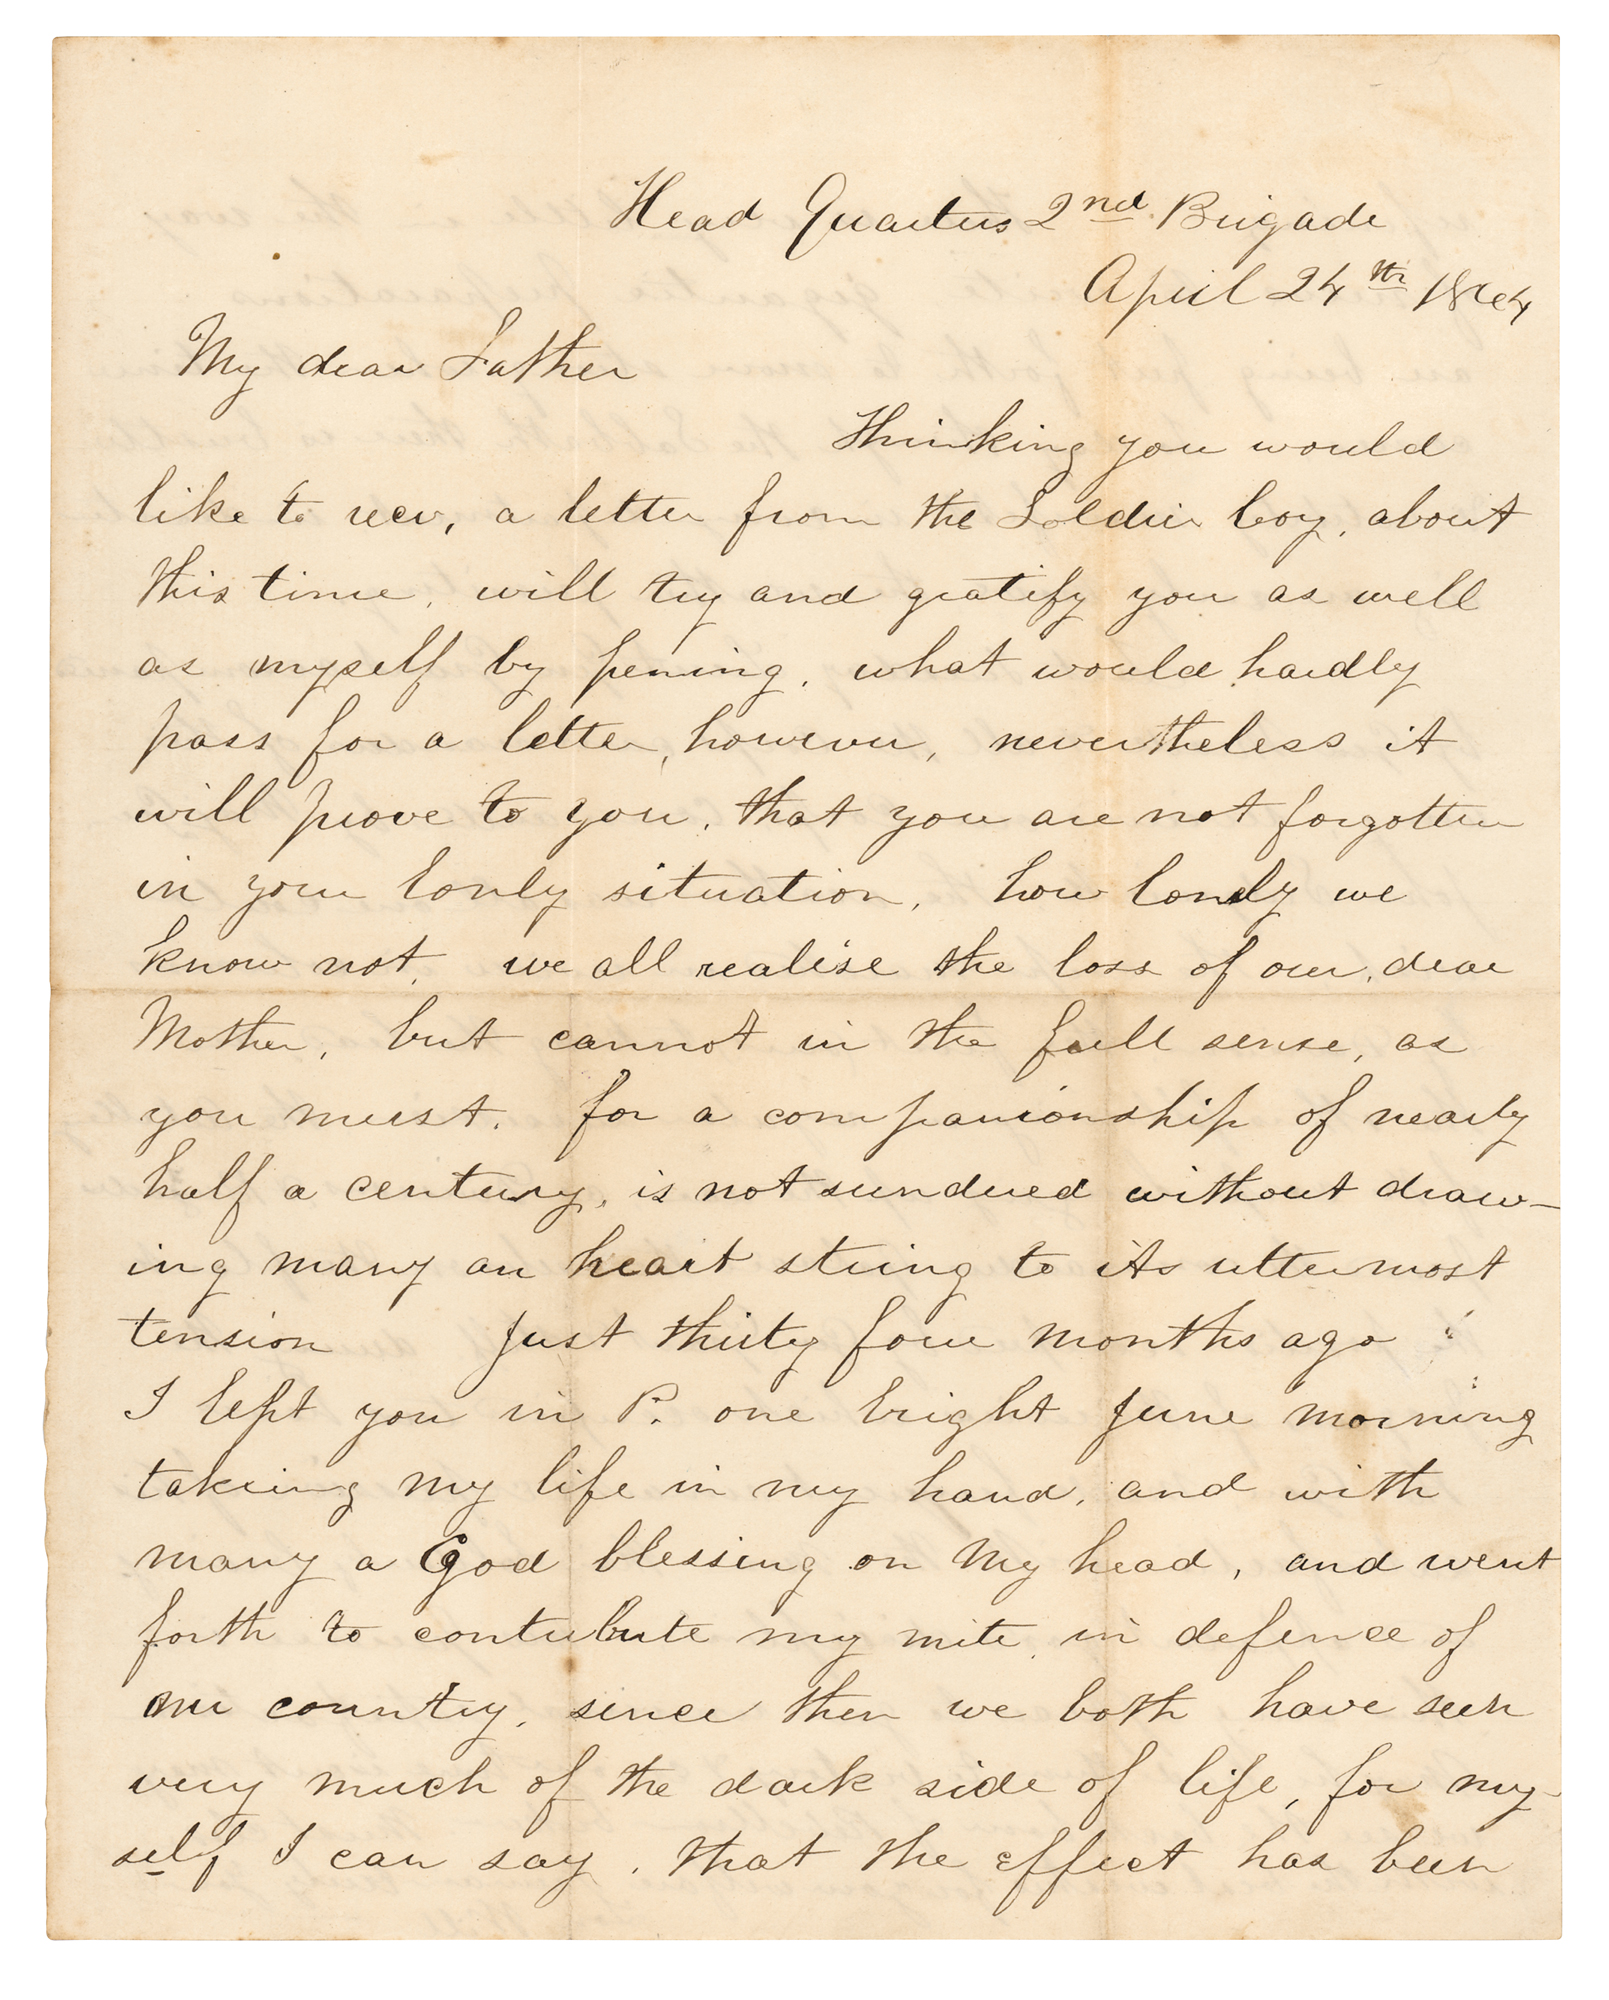 Head Quarters 2nd Brigade
April 24th 1864
My dear Father
Thinking you would
like to recv, a letter from the Soldier boy, about
this time, will try and gratify you as well
as myself by pening, what would hardly
pass for a letter, however, nevertheless it
will prove to you, that you are not forgotten
in your lonly situation, how lonely we
know not, we all realise the loss of our dear
Mother, but cannot in the full sense, as
you must, for a companionship of nearly
half a century, is not sundered without draw-
ing many an heart string to its uttermost
tension Just thirty four months ago
I left you in P. one bright June morning
taking my life in my hand, and with
many a God blessing on my head, and went
forth to contribute my mite in defence of
our country, since then we both have seen
very much of the dark side of life, for my-
self I can say, that the effect has been